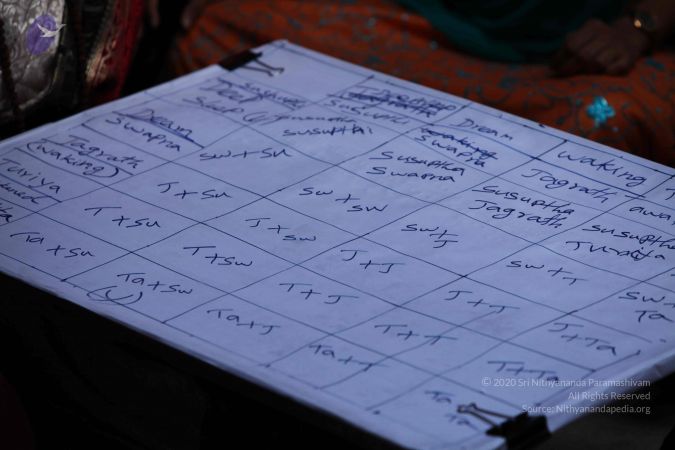 Dream
Waking
Susupti
Dream
Swapna
Jagrath
Susupti
Swapna
Jagrath
(waking)
Sw x Su
Susuptha
Swapna
Susuptha
Jagrath
Susuptha
Turiya
Turiya
T x Su
J x Su
Sw x Sw
Sw x J
Sw x T
Sw x
Ta
Ta x Su
T x Sw
J x Sw
J x J
J x T
J x Ta
Ta x Sw
T x J
T x T
T x Ta
Ta x J
Ta x T
Ta x
Ta
© 2020 Sri Nithyananda Paramashivam
All Rights Reserved
Source: Nithyanandapedia.org